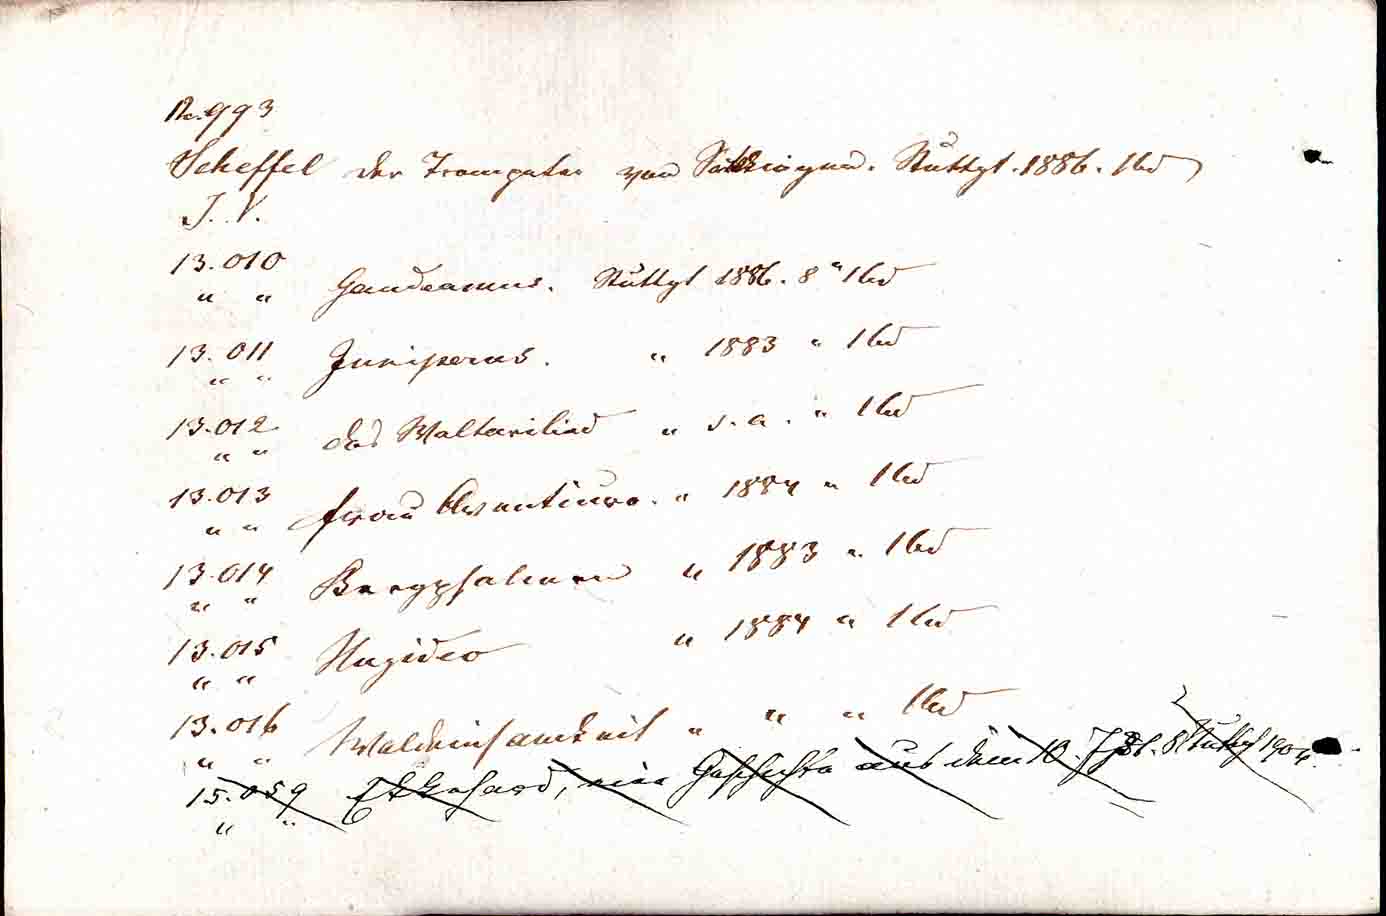 No. 993
Scheffel der Trompeter von Säckingen. Stuttgt. 1886. 1 Bd
J. V.
13.010
" " Gaudeamus. Stuttgt 1886. 8° 1 Bd
13.011 Juniperus. " 1883 " 1 Bd
" "
13.012 das Waltarilied " s. a. " 1 Bd
" "
13.013 frau Aventiure. " 1884 " 1 Bd
" "
13.014 Bergpsalmen " 1883 " 1 Bd
" "
13.015 Hugideo " 1884 " 1 Bd
" "
13.016 Waldeinsamkeit " " " 1 Bd
" "
15.059 Ekkehard, eine Geschichte aus dem 10. Stuttgt 1904.
" "